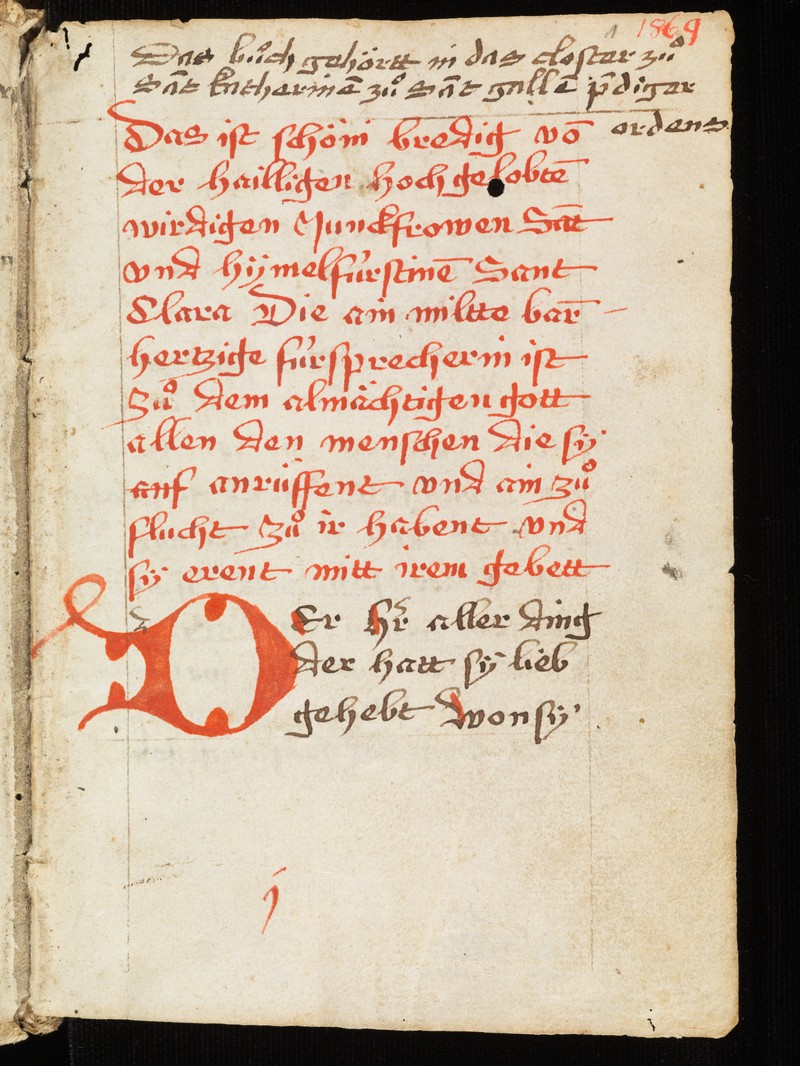 1869
Das bůch gehörtt in das closter zů
Sāt katherinē zů Sāt gallē p̄diger
ordens
Das ist schöni bredig vō
der hailligen hochgelobtē
wirdigen Junckfrowen Sāt
vnd hÿmelfúrstinē Sant
Clara Die ain miltte bar̄
hertzige fúrsprecherin ist
zů dem almächtigen gott
allen den menschen die sÿ
anruͤffent vnd ain zů
flucht zů ir habent vnd
sÿ erent mitt irem gebett
DEr hr̄ aller ding
der hatt sÿ lieb
gehebt won sÿ
j